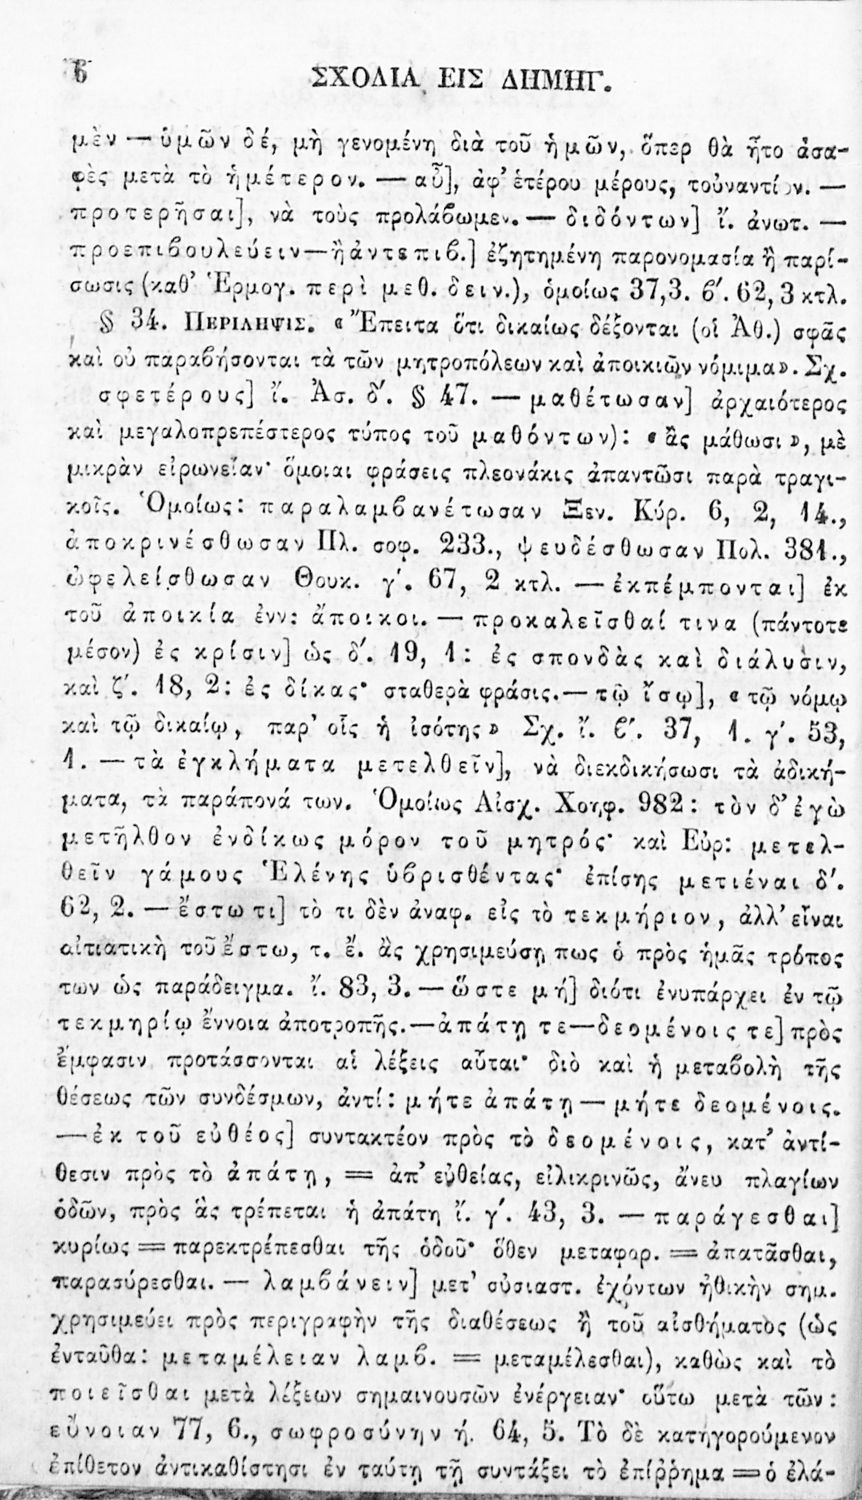 6
ΣΧΟΛΙΑ ΕΙΣ ΔΗΜΗΓ.
μὲν — ὑμῶν δέ, μὴ γενομένη διὰ τοῦ ἡμῶν, ὅπερ θὰ ἦτο ἀσα-
φὲς μετὰ τὸ ἡμέτερον. — αὖ], ἀφ’ ἑτέρου μέρους, τοὐναντίον. —
προτερῆσαι], νὰ τοὺς προλάβωμεν. — διδόντων] ἴ. ἀνωτ. —
προεπιβουλεύειν — ἢ ἀντεπιβ.] ἐζητημένη παρονομασία ἢ παρί-
σωσις (καθ’ Ἑρμογ. περὶ μεθ. δειν.), ὁμοίως 37,3. ϐ′. 62,3 κτλ.
§ 34. ΠΕΡΙΛΗΨΙΣ. « Ἔπειτα ὅτι δικαίως δέξονται (οἱ Ἀθ.) σφᾶς
καὶ οὐ παραβήσονται τὰ τῶν μητροπόλεων καὶ ἀποικιῶν νόμιμα». Σχ.
σφετέρους] ἴ. Ἀσ. δ′. § 47. — μαθέτωσαν] ἀρχαιότερος
καὶ μεγαλοπρεπέστερος τύπος τοῦ μαθόντων): « ἂς μάθωσι », μὲ
μικρὰν εἰρωνείαν· ὅμοιαι φράσεις πλεονάκις ἀπαντῶσι παρὰ τραγι-
κοῖς. Ὁμοίως: παραλαμβανέτωσαν Ξεν. Κύρ. 6, 2, 14.,
ἀποκρινέσθωσαν Πλ. σοφ. 233., ψευδέσθωσαν Πολ. 381.,
ὠφελείσθωσαν Θουκ. γ′. 67, 2 κτλ. — ἐκπέμπονται] ἐκ
τοῦ ἀποικία ἐνν: ἄποικοι. — προκαλεῖσθαί τινα (πάντοτε
μέσον) ἐς κρίσιν] ὡς δ′. 19, 1: ἐς σπονδὰς καὶ διάλυσιν,
καὶ ζ′. 18, 2: ἐς δίκας· σταθερὰ φράσις. — τῷ ἴσῳ], « τῷ νόμῳ
καὶ τῷ δικαίῳ, παρ’ οἷς ἡ ἰσότης » Σχ. ἴ. ϐ′. 37, 1. γ′. 53,
1. — τὰ ἐγκλήματα μετελθεῖν], νὰ διεκδικήσωσι τὰ ἀδική-
ματα, τὰ παράπονά των. Ὁμοίως Αἰσχ. Χοηφ. 982: τὸν δ’ ἐγὼ
μετῆλθον ἐνδίκως μόρον τοῦ μητρός· καὶ Εὐρ: μετελ-
θεῖν γάμους Ἑλένης ὑβρισθέντας· ἐπίσης μετιέναι δ′.
62, 2. — ἔστω τι] τὸ τι δὲν ἀναφ. εἰς τὸ τεκμήριον, ἀλλ’ εἶναι
αἰτιατικὴ τοῦ ἔστω, τ. ἔ. ἂς χρησιμεύσῃ πως ὁ πρὸς ἡμᾶς τρόπος
των ὡς παράδειγμα. ἴ. 83, 3. — ὥστε μή] διότι ἐνυπάρχει ἐν τῷ
τεκμηρίῳ ἔννοια ἀποτροπῆς. — ἀπάτῃ τε — δεομένοις τε] πρὸς
ἔμφασιν προτάσσονται αἱ λέξεις αὗται· διὸ καὶ ἡ μεταβολὴ τῆς
θέσεως τῶν συνδέσμων, ἀντί: μήτε ἀπάτῃ — μήτε δεομένοις.
— ἐκ τοῦ εὐθέος] συντακτέον πρὸς τὸ δεομένοις, κατ’ ἀντί-
θεσιν πρὸς τὸ ἀπάτῃ, = ἀπ’ εὐθείας, εἰλικρινῶς, ἄνευ πλαγίων
ὁδῶν, πρὸς ἃς τρέπεται ἡ ἀπάτη ἴ. γ′. 43, 3. — παράγεσθαι]
κυρίως = παρεκτρέπεσθαι τῆς ὁδοῦ· ὅθεν μεταφορ. = ἀπατᾶσθαι,
παρασύρεσθαι. — λαμβάνειν] μετ’ οὐσιαστ. ἐχόντων ἠθικὴν σημ.
χρησιμεύει πρὸς περιγραφὴν τῆς διαθέσεως ἢ τοῦ αἰσθήματος (ὡς
ἐνταῦθα: μεταμέλειαν λαμβ. = μεταμέλεσθαι), καθὼς καὶ τὸ
ποιεῖσθαι μετὰ λέξεων σημαινουσῶν ἐνέργειαν· οὕτω μετὰ τῶν:
εὔνοιαν 77, 6., σωφροσύνην ή. 64, 5. Τὸ δὲ κατηγορούμενον
ἐπίθετον ἀντικαθίστησι ἐν ταύτῃ τῇ συντάξει τὸ ἐπίῤῥημα = ὁ ἐλά-